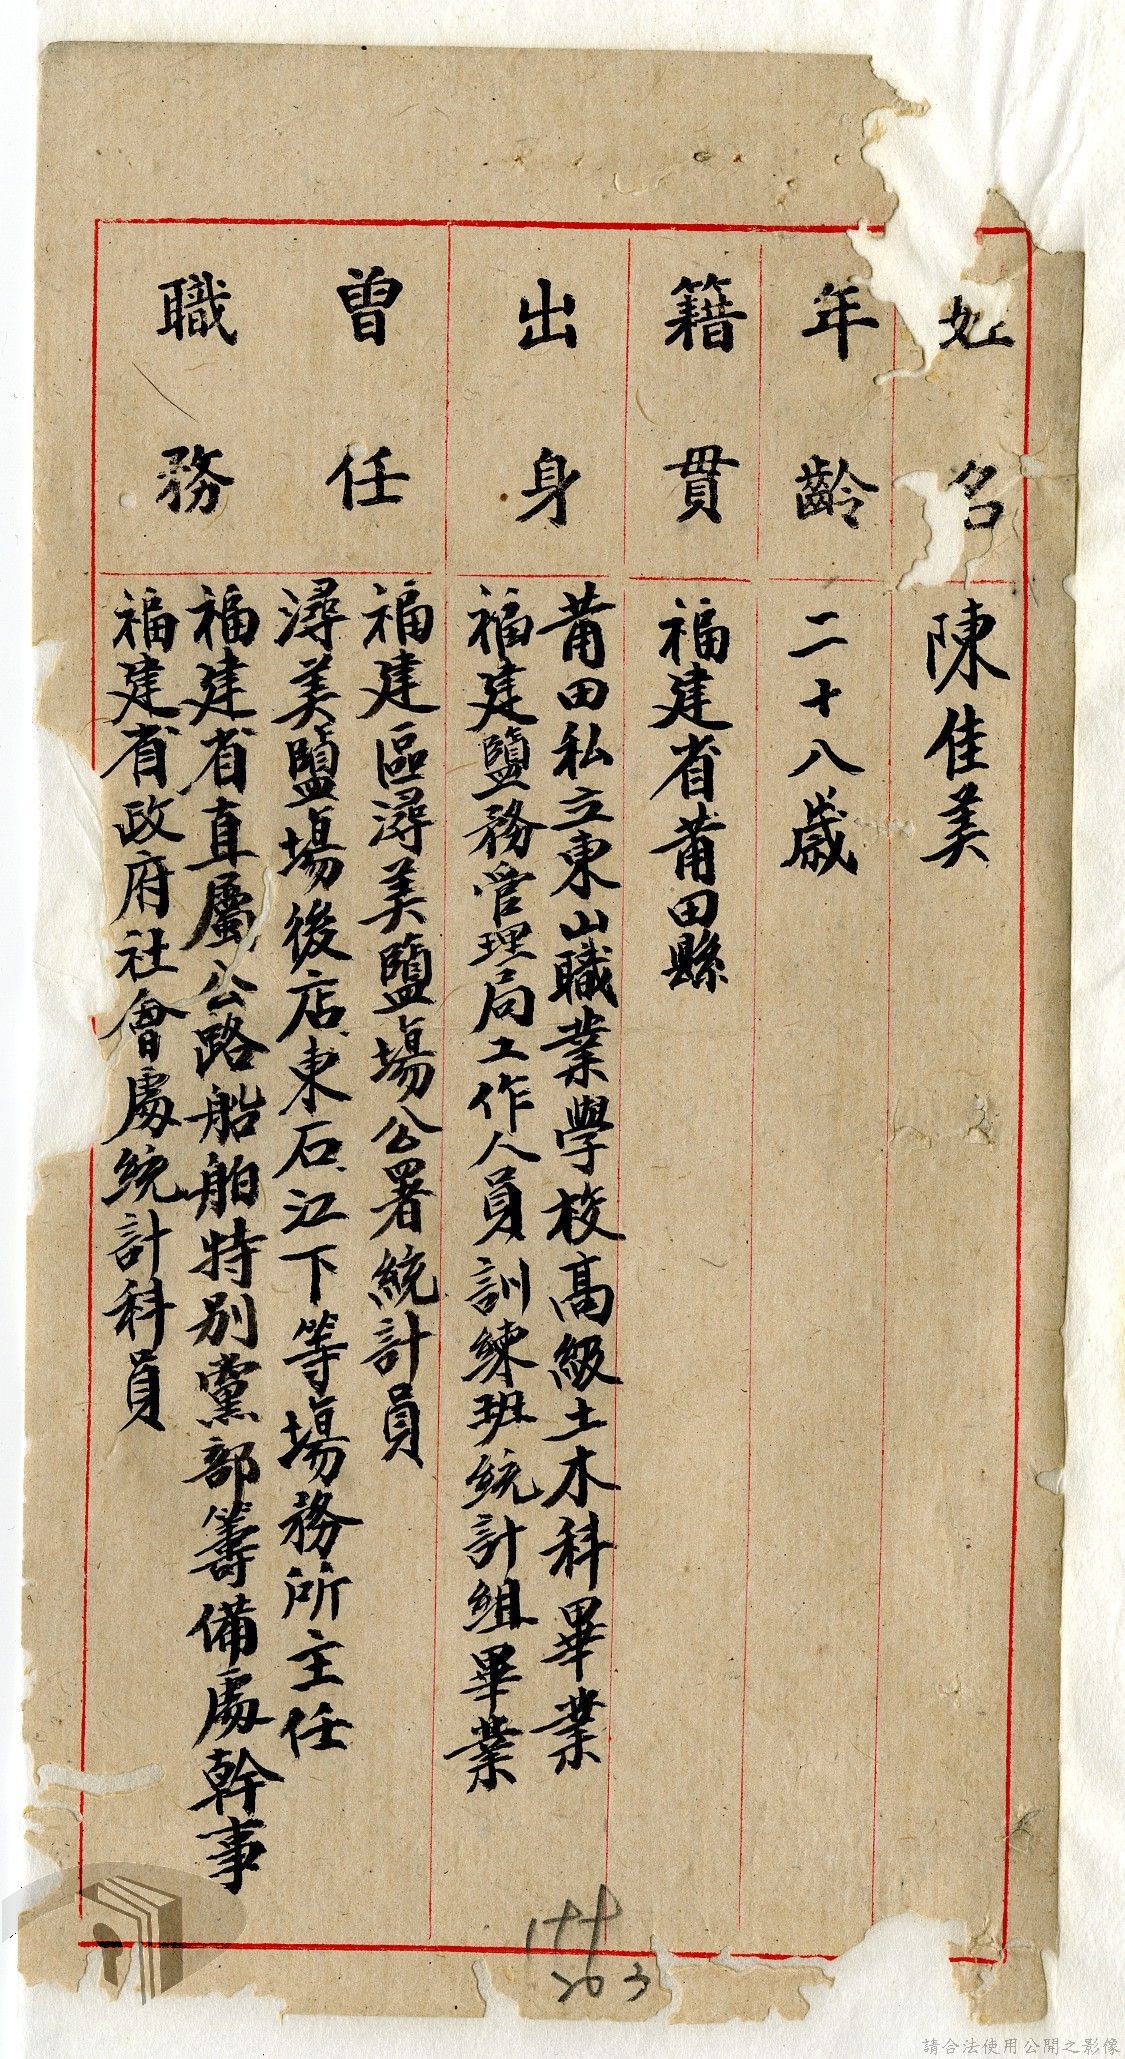 姓名
陳佳美
年齡
二十八歲
籍貫
福建省莆田縣
出身
莆田私立東山職業學校高級土木科畢業
福建鹽務管理局工作人員訓練班統計組畢業
曾任
職務
福建區潯美鹽場公署統計員
潯美鹽場後店、東石、江下等場務所主任
福建省直屬公路船舶特別黨部籌備處幹事
福建省政府社會處統計科員
203
請合法使用公開之影像